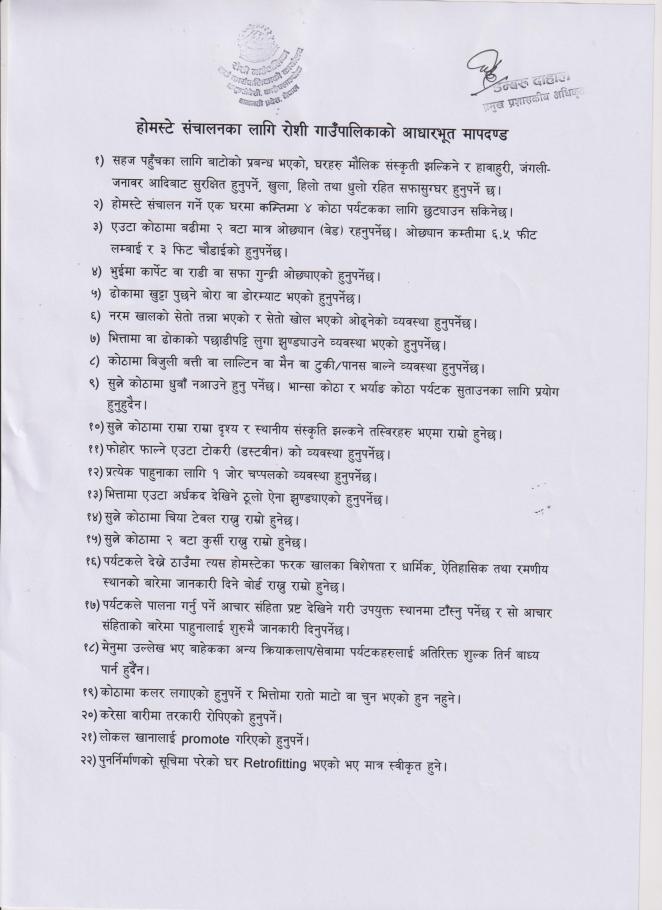 रोशी गाउँपालिका
डम्बरु दाहाल
प्रमुख प्रशासकीय अधिकृत
होमस्टे संचालनका लागि रोशी गाउँपालिकाको आधारभूत मापदण्ड
१) सहज पहुँचका लागि बाटोको प्रवन्ध भएको, घरहरु मौलिक संस्कृती झल्किने र हावाहुरी, जंगली-
जनावर आदिबाट सुरक्षित हुनुपर्ने, खुला, हिलो तथा धुलो रहित सफासुग्घर हुनुपर्ने छ।
२) होमस्टे संचालन गर्ने एक घरमा कम्तिमा ४ कोठा पर्यटकका लागि छुटयाउन सकिनेछ।
३) एउटा कोठामा बढीमा २ वटा मात्र ओछ्यान (बेड) रहनुपर्नेछ। ओछ्यान कम्तीमा ६.५ फीट
लम्बाई र ३ फिट चौडाईको हुनुपर्नेछ।
४) भुईमा कार्पेट वा राडी वा सफा गुन्द्री ओछ्याएको हुनुपर्नेछ।
५) ढोकामा खुट्टा पुछने बोरा वा डोरम्याट भएको हुनुपर्नेछ।
६) नरम खालको सेतो तन्ना भएको र सेतो खोल भएको ओढ्नेको व्यवस्था हुनुपर्नेछ।
७) भित्तामा वा ढोकाको पछाडीपट्टि लुगा झुण्ड्याउने व्यवस्था भएको हुनुपर्नेछ।
८) कोठामा बिजुली बत्ती वा लाल्टिन वा मैन वा टुकी/पानस बाल्ने व्यवस्था हुनुपर्नेछ।
९) सुत्ने कोठामा धुवाँ नआउने हुनु पर्नेछ। भान्सा कोठा र भर्याङ कोठा पर्यटक सुताउनका लागि प्रयोग
हुनुहुदैन।
१०) सुत्ने कोठामा राम्रा राम्रा दृश्य र स्थानीय संस्कृति झल्कने तस्विरहरु भएमा राम्रो हुनेछ।
११) फोहोर फाल्ने एउटा टोकरी (डस्टवीन) को व्यवस्था हुनुपर्नेछ।
१२) प्रत्येक पाहुनाका लागि १ जोर चप्पलको व्यवस्था हुनुपर्नेछ।
१३) भित्तामा एउटा अर्धकद देखिने ठूलो ऐना झुण्ड्याएको हुनुपर्नेछ।
१४) सुत्ने कोठामा चिया टेवल राख्नु राम्रो हुनेछ।
१५) सुत्ने कोठामा २ वटा कुर्सी राख्नु राम्रो हुनेछ।
१६) पर्यटकले देख्ने ठाउँमा त्यस होमस्टेका फरक खालका बिशेषता र धार्मिक, ऐतिहासिक तथा रमणीय
स्थानको बारेमा जानकारी दिने बोर्ड राख्नु राम्रो हुनेछ।
१७) पर्यटकले पालना गर्नु पर्ने आचार संहिता प्रष्ट देखिने गरी उपयुक्त स्थानमा टाँस्नु पर्नेछ र सो आचार
संहिताको वारेमा पाहुनालाई शुरुमै जानकारी दिनुपर्नेछ।
१८) मेनुमा उल्लेख भए बाहेकका अन्य क्रियाकलाप/सेवामा पर्यटकहरुलाई अतिरिक्त शुल्क तिर्न बाध्य
पार्न हुदैँन।
१९) कोठामा कलर लगाएको हुनुपर्ने र भित्तोमा रातो माटो वा चुन भएको हुन नहुने।
२०) करेसा बारीमा तरकारी रोपिएको हुनुपर्ने।
२१) लोकल खानालाई promote गरिएको हुनुपर्ने।
२२) पुनर्निर्माणको सूचिमा परेको घर Retrofitting भएको भए मात्र स्वीकृत हुने।